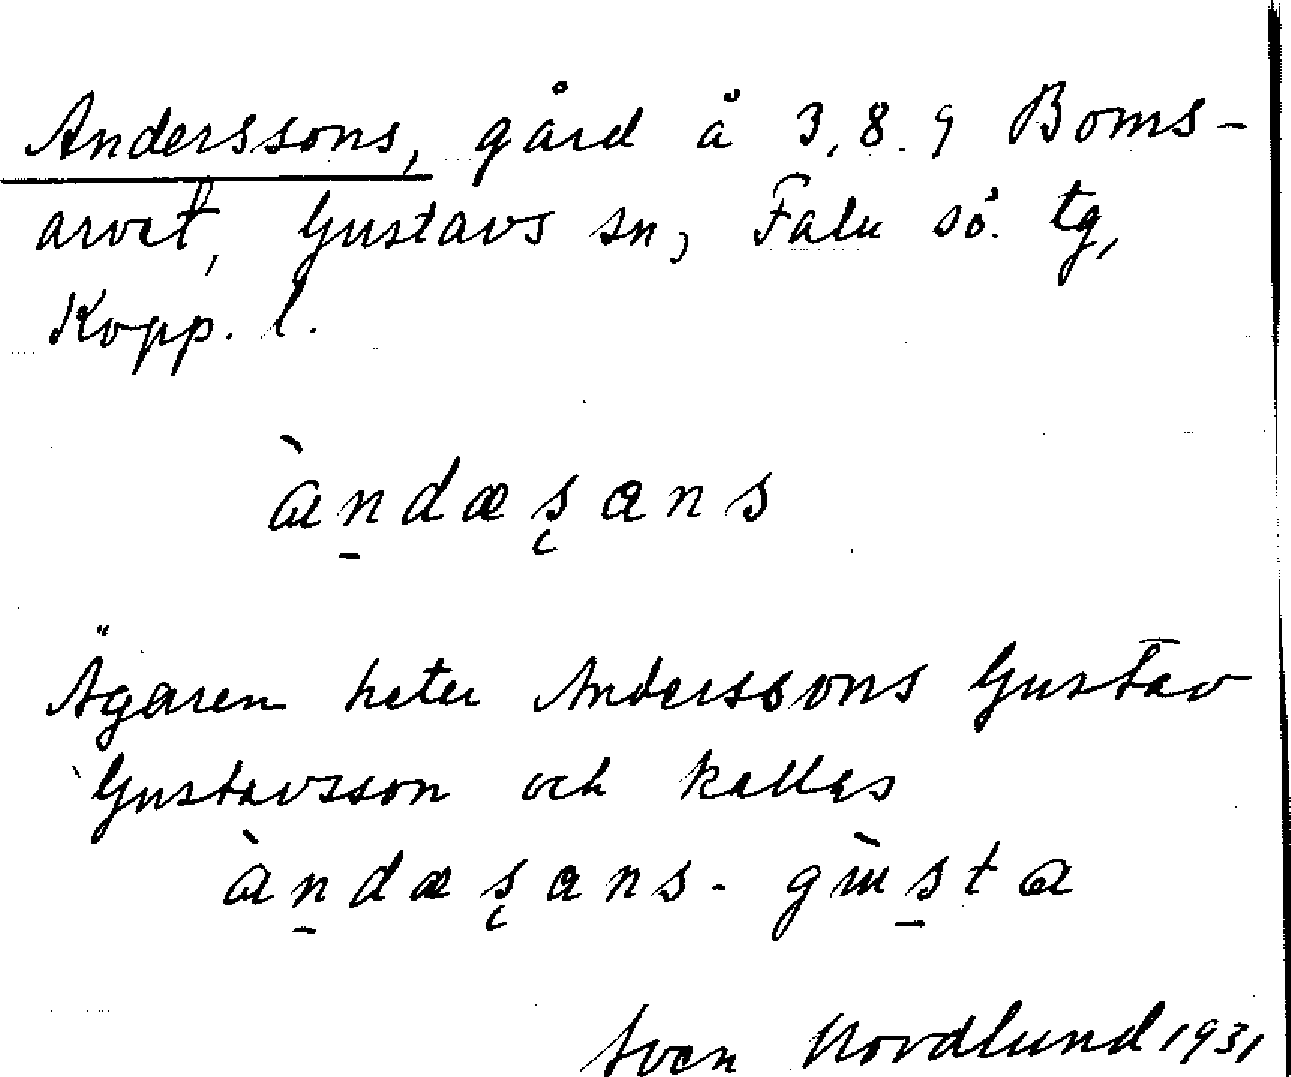 Anderssons, gård å 3,8.9 Boms-
arvet, Gustavs sn, Falu sö. tg,
Kopp. l.
àn̠dæşans
Ägaren heter Anderssons Gustav
Gustavsson och kallas
àn̠dæşans-gɯ̀s̠ta
Sven Nordlund 1931